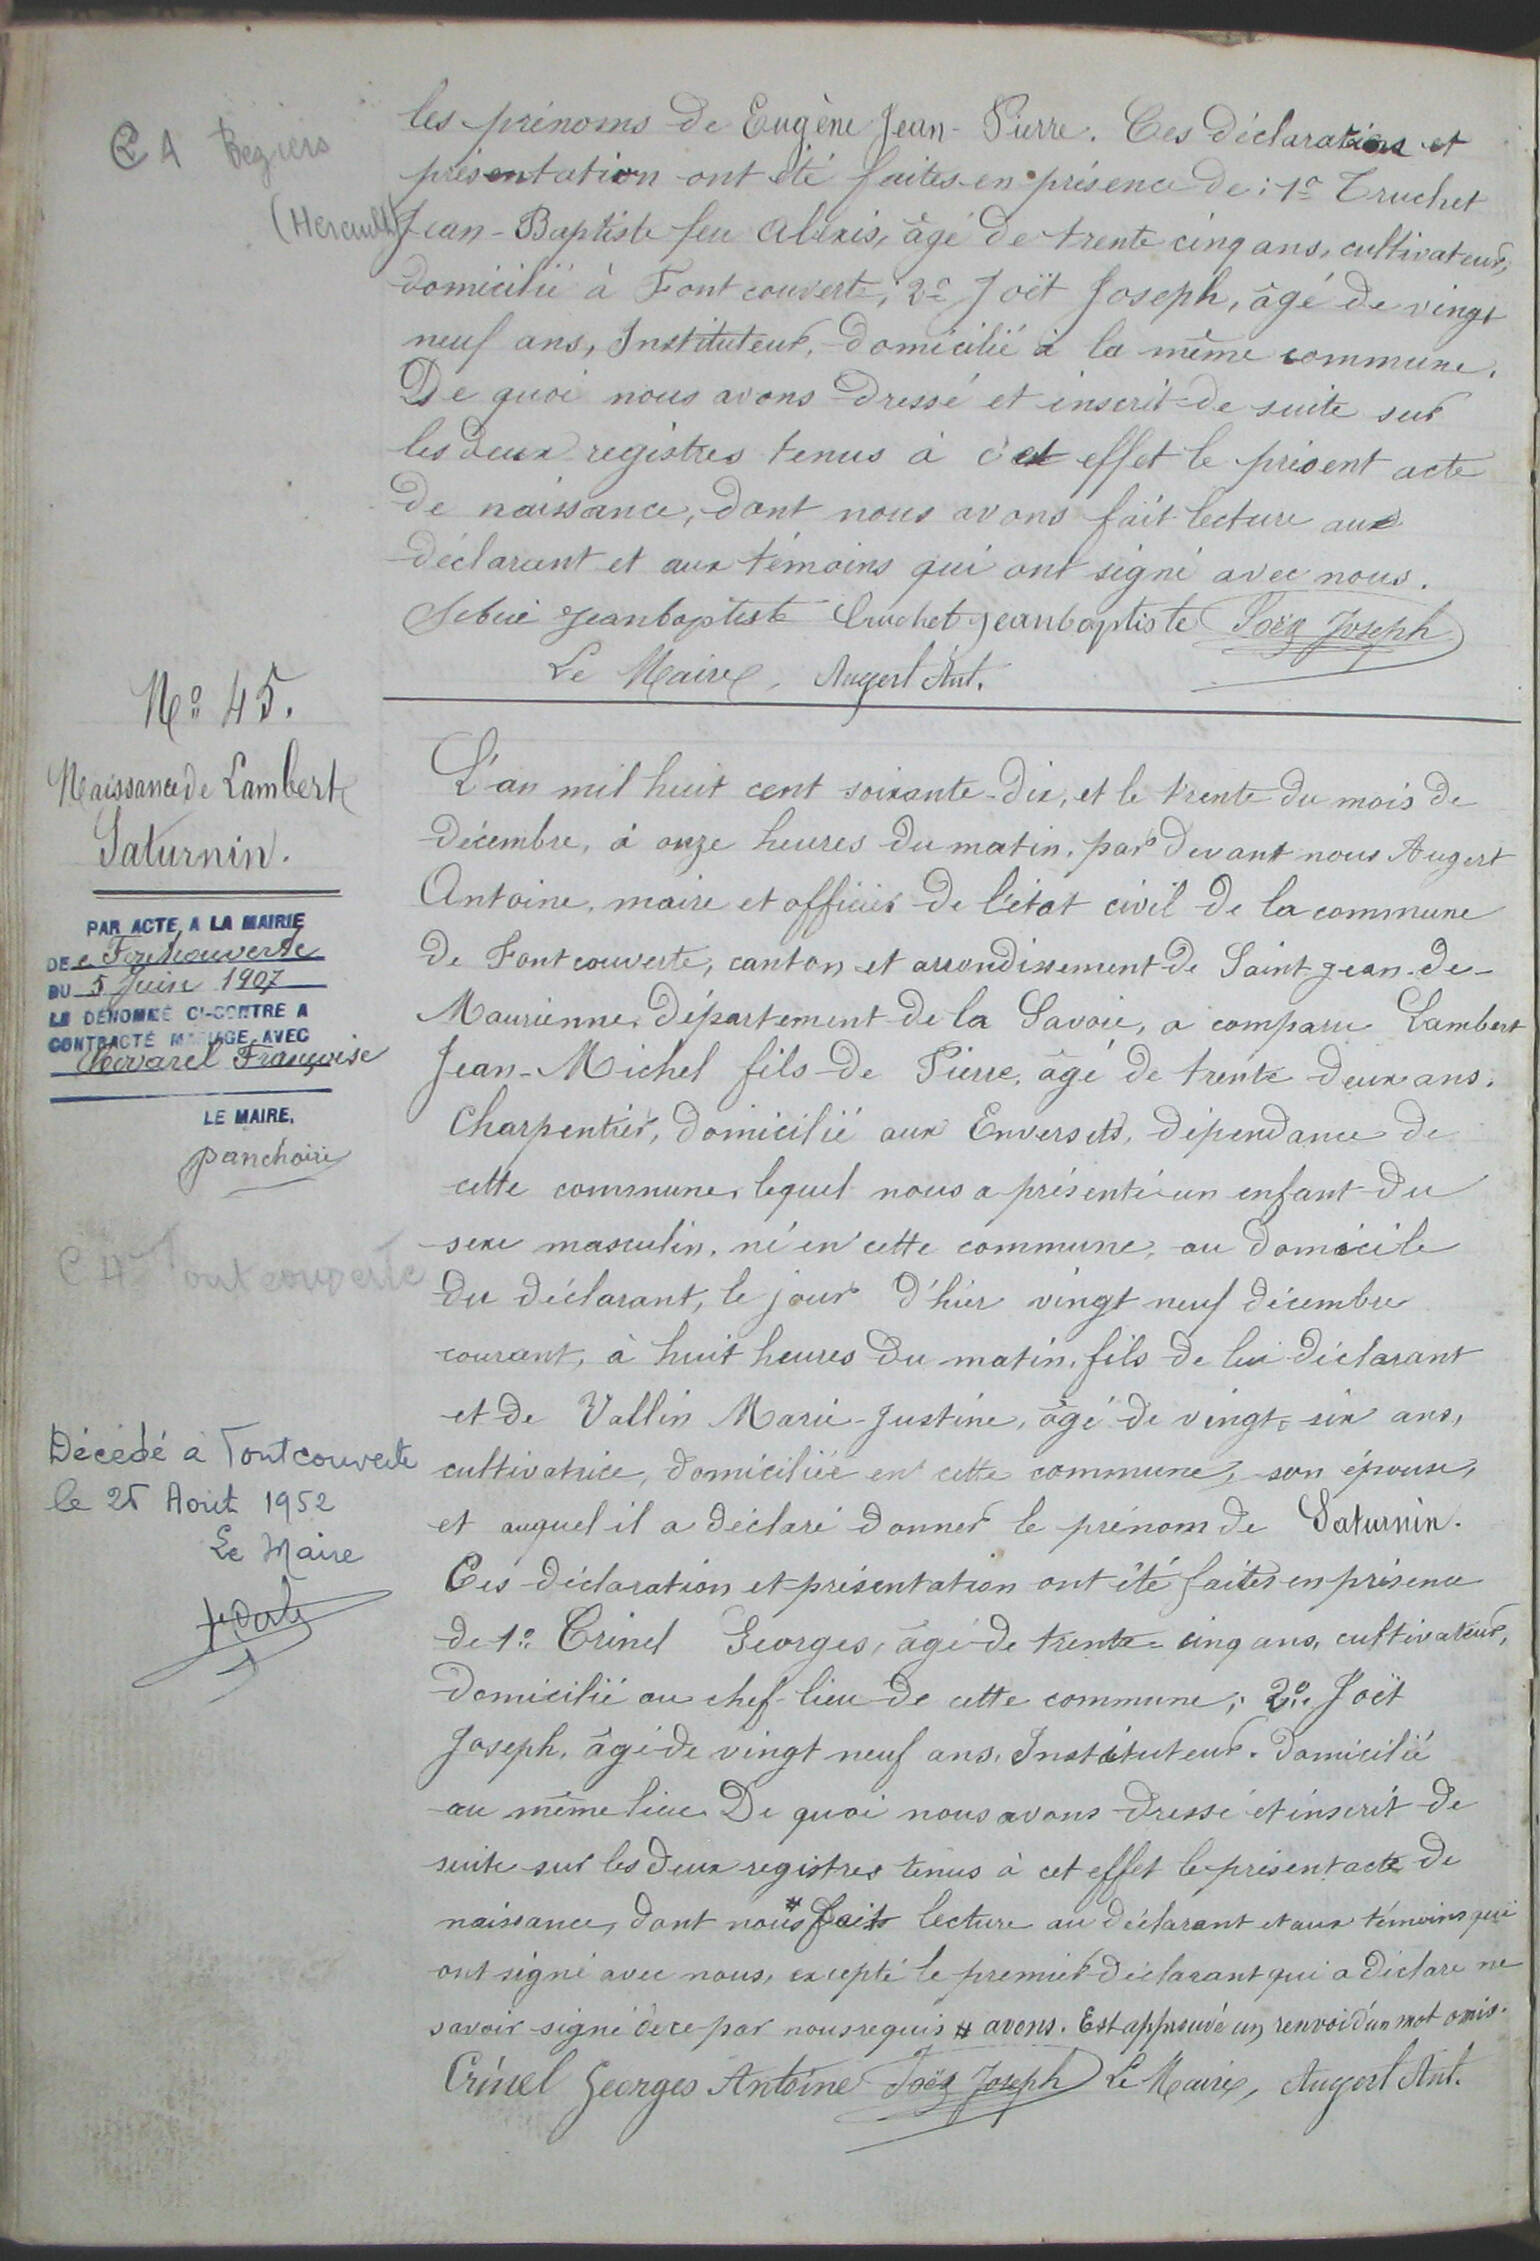 C 4 Beziers
(Herault)
les prénoms de Eugène Jean-Pierre. Ces déclarations et
présentation ont été faites en présence de: 1º Truchet
Jean-Baptiste feu Alexis, âgé de trente cinq ans, cultivateur,
domicilié à Fontcouverte, 2º Joët Joseph, âgé de vingt
neuf ans, Instituteur, domicilié à la même commune.
De quoi nous avons dressé et inscrit de suite sur
les deux registres tenus à cet effet le présent acte
de naissance, dont nous avons fait lecture aux
déclarant et aux témoins qui ont signé avec nous.
Jeanbaptiste Truchet jeanbaptiste Joët Joseph
Le Maire, Augert Ant.
Nº 45.
Naissance de Lambert
Saturnin.
PAR ACTE, A LA MAIRIE
DE Fontcouverte
DU 5 Juin 1907
LE DÉNOMMÉ CI-CONTRE A
CONTRACTÉ MARIAGE AVEC
Chovarel Françoise
LE MAIRE,
Panchoire
C 4 Fontcouverte
Décédé à Fontcouverte
le 25 Août 1952
Le Maire
L'an mil huit cent soixante-dix, et le trente du mois de
décembre, à onze heures du matin, par devant nous Augert
Antoine, maire et officier de l'état civil de la commune
de Fontcouverte, canton et arrondissement de Saint-Jean-de-
Maurienne, département de la Savoie, a comparu Lambert
Jean-Michel fils de Pierre, âgé de trente deux ans,
charpentier, domicilié aux Enverséts, dépendance de
cette commune, lequel nous a présenté un enfant du
sexe masculin, né en cette commune, au domicile
du déclarant, le jour d'hier vingt neuf décembre
courant, à huit heures du matin, fils de lui déclarant
et de Vallin Marie-Justine, âgé de vingt-six ans,
cultivatrice, domiciliée en cette commune, son épouse,
et auquel il a déclaré donner le prénom de Saturnin.
Ces déclaration et présentation ont été faites en présence
de 1º Crinel Georges, âgé de trente-cinq ans, cultivateur,
domicilié au chef-lieu de cette commune; 2º Joët
Joseph, âgé de vingt neuf ans, Instituteur. domicilié
au même lieu. De quoi nous avons dressé et inscrit de
suite sur les deux registres tenus à cet effet le présent acte de
naissance, dont nous # fait lecture au déclarant et aux témoins qui
ont signé avec nous, excepté le premier déclarant qui a déclaré ne
savoir signé de ce par nous requis # avons. Est approuvé un renvoi d'un mot omis.
Crinel Georges Antoine Joët Joseph Le Maire, Augert Ant.